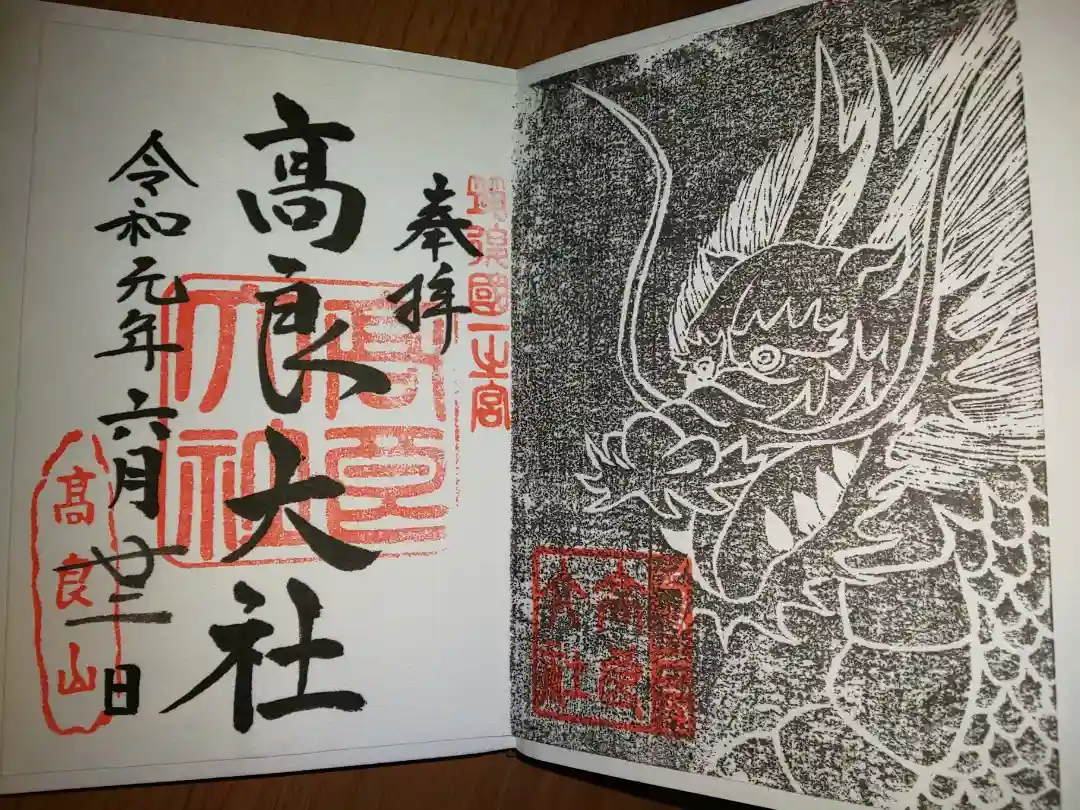 奉拝
筑後國一之宮
高良大社
高良大社
令和元年六月廿二日
髙良山
高良大社